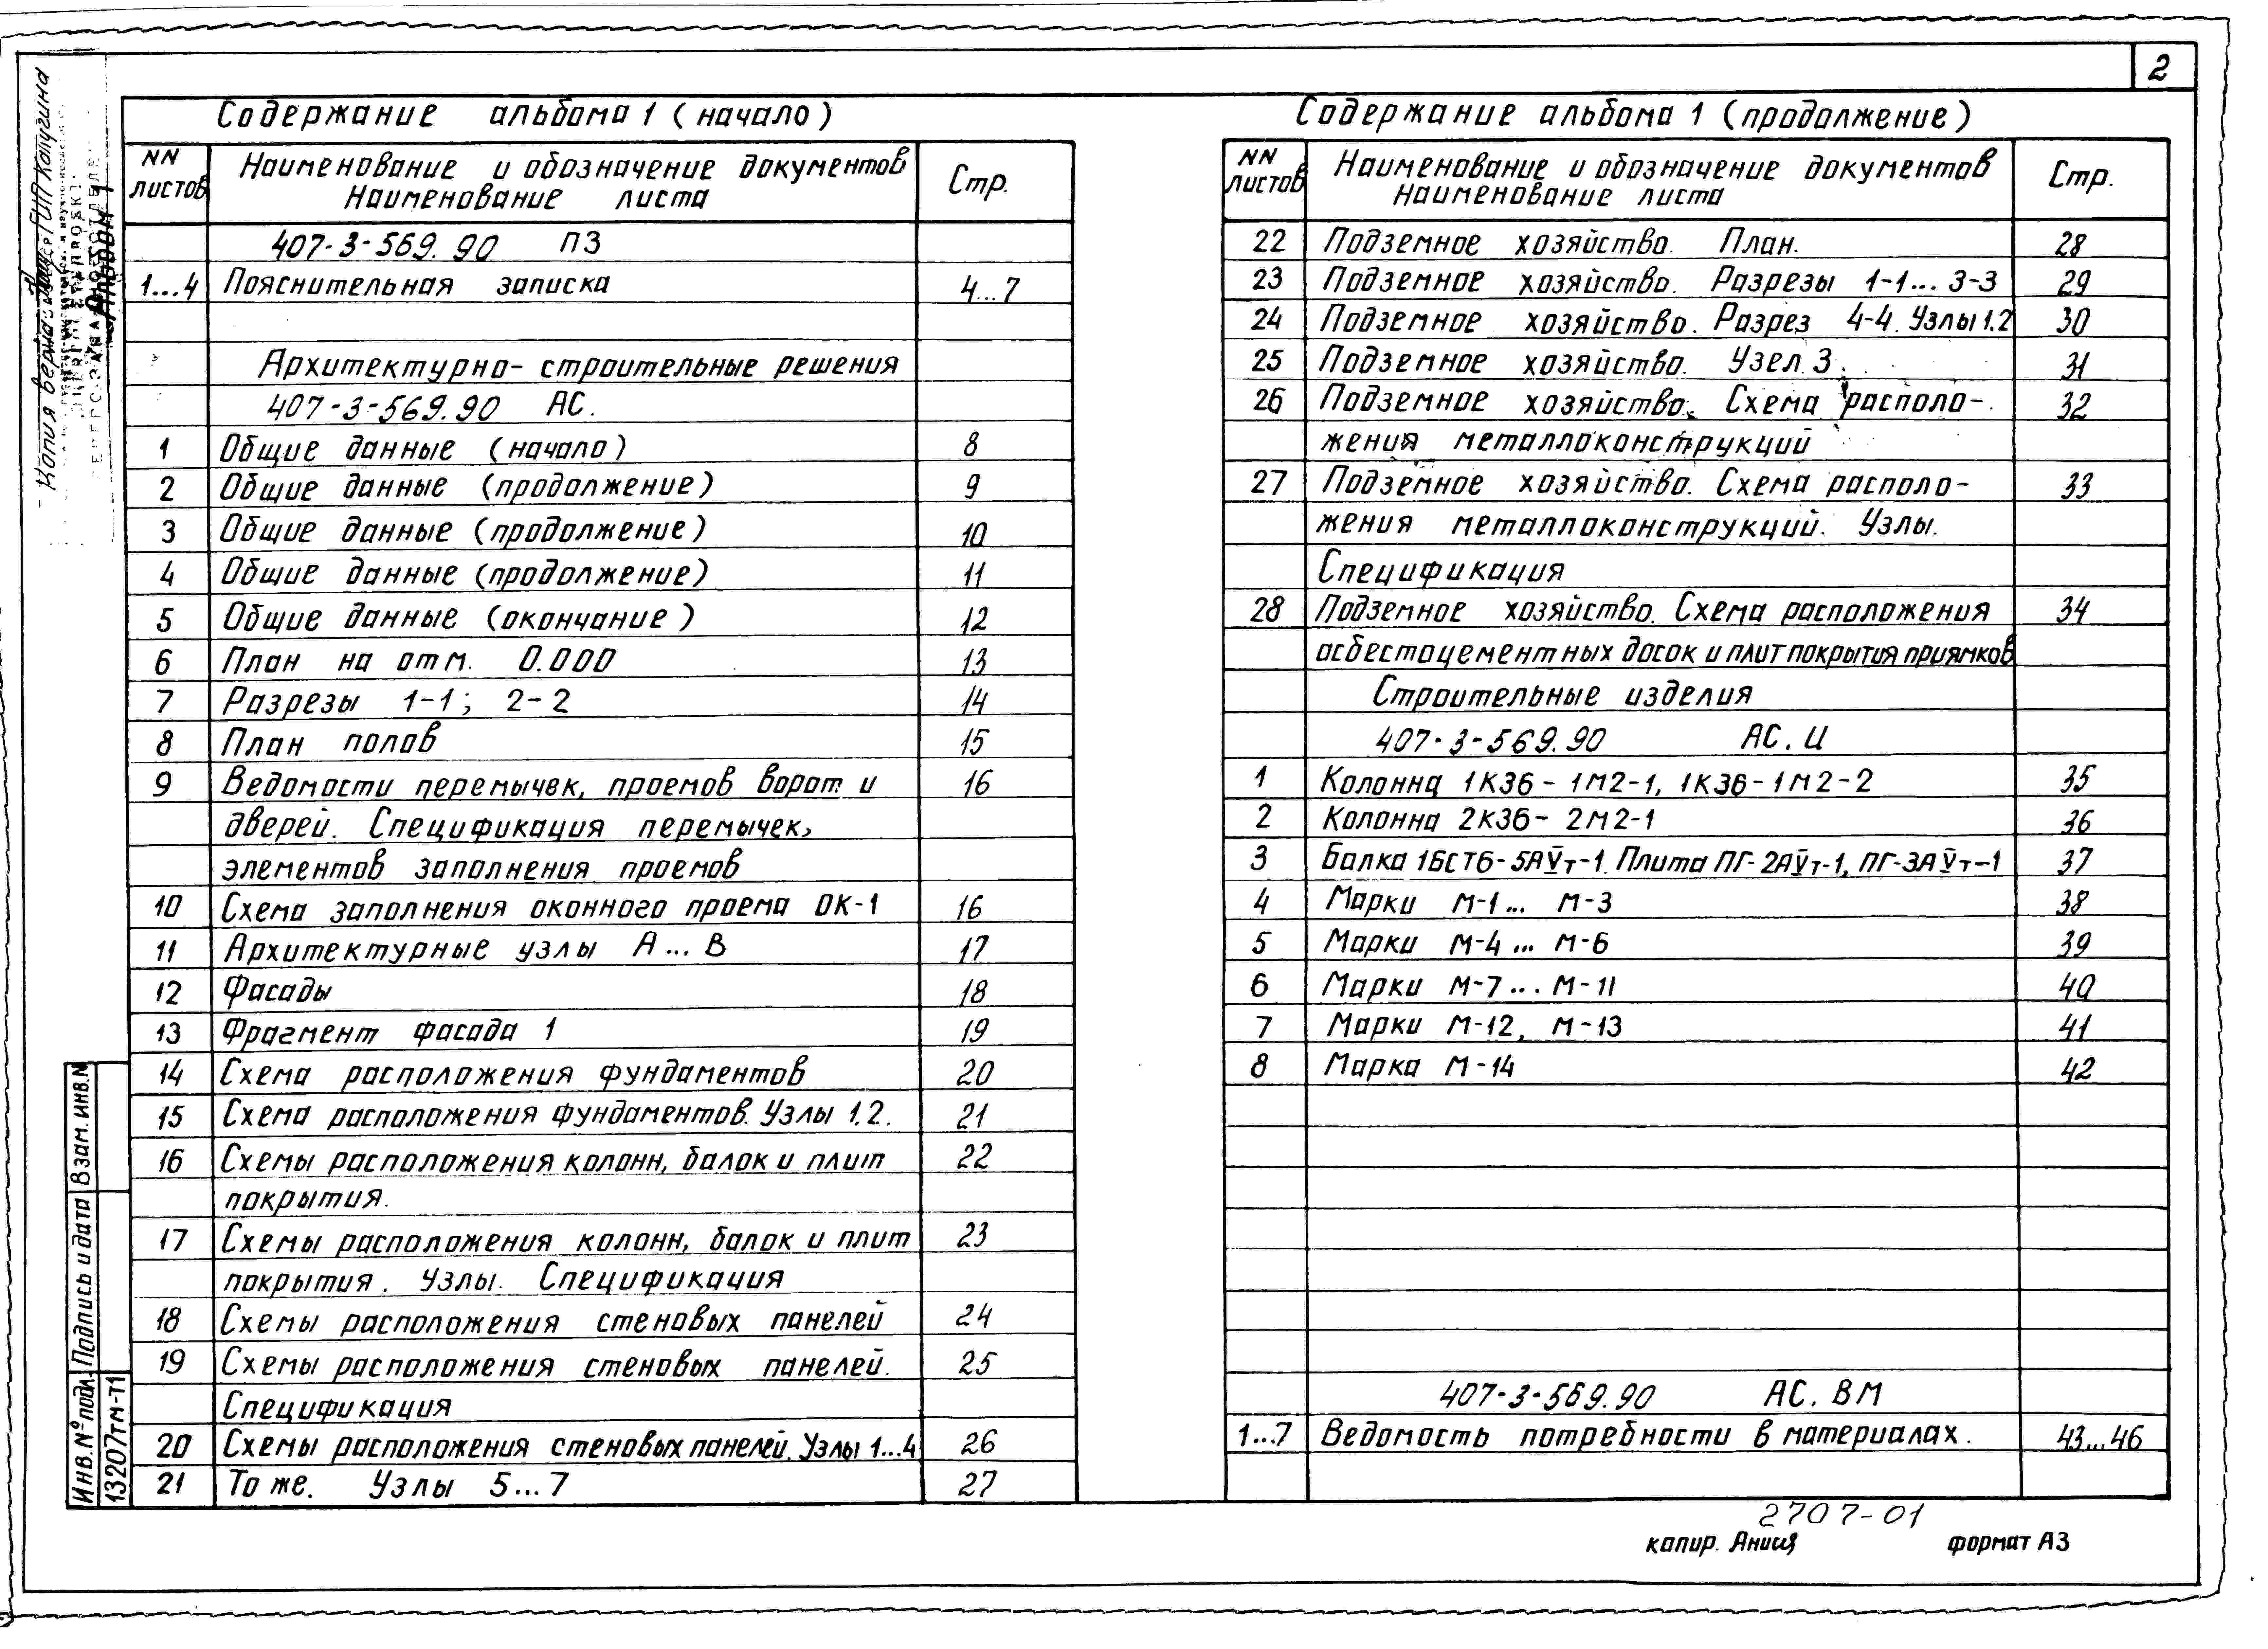 2
Содержание альбома 1 (начало)
NN листов | Наименование и обозначение документов Наименование листа | Стр.
407-3-569.90 ПЗ
1...4 Пояснительная записка 4...7
Архитектурно-строительные решения
407-3-569.90 АС.
1 Общие данные (начало) 8
2 Общие данные (продолжение) 9
3 Общие данные (продолжение) 10
4 Общие данные (продолжение) 11
5 Общие данные (окончание) 12
6 План на отм. 0.000 13
7 Разрезы 1-1; 2-2 14
8 План полов 15
9 Ведомости перемычек, проемов ворот и 16
дверей. Спецификация перемычек,
элементов заполнения проемов
10 Схема заполнения оконного проема ОК-1 16
11 Архитектурные узлы А...В 17
12 Фасады 18
13 Фрагмент фасада 1 19
14 Схема расположения фундаментов 20
15 Схема расположения фундаментов. Узлы 1.2. 21
16 Схемы расположения колонн, балок и плит 22
покрытия.
17 Схемы расположения колонн, балок и плит 23
покрытия. Узлы. Спецификация
18 Схемы расположения стеновых панелей 24
19 Схемы расположения стеновых панелей. 25
Спецификация
20 Схемы расположения стеновых панелей. Узлы 1...4 26
21 То же. Узлы 5...7 27
Содержание альбома 1 (продолжение)
NN листов | Наименование и обозначение документов Наименование листа | Стр.
22 Подземное хозяйство. План. 28
23 Подземное хозяйство. Разрезы 1-1... 3-3 29
24 Подземное хозяйство. Разрез 4-4. Узлы 1.2 30
25 Подземное хозяйство. Узел 3. 31
26 Подземное хозяйство. Схема располо- 32
жения металлоконструкций
27 Подземное хозяйство. Схема располо- 33
жения металлоконструкций. Узлы.
Спецификация
28 Подземное хозяйство. Схема расположения 34
асбестоцементных досок и плит покрытия приямков
Строительные изделия
407-3-569.90 АС.И
1 Колонна 1К36-1М2-1, 1К36-1М2-2 35
2 Колонна 2К36-2М2-1 36
3 Балка 1БСТ6-5АV̅т-1. Плита ПГ-2АV̅т-1, ПГ-3АV̅т-1 37
4 Марки М-1... М-3 38
5 Марки М-4... М-6 39
6 Марки М-7... М-11 40
7 Марки М-12, М-13 41
8 Марка М-14 42
407-3-569.90 АС.ВМ
1...7 Ведомость потребности в материалах. 43...46
2707-01
копир. Анися формат А3
Копия верна: ГИП Калугина
Альбом 1
Взам. инв.N
Подпись и дата
Инв. № подл.
13207тм-т1